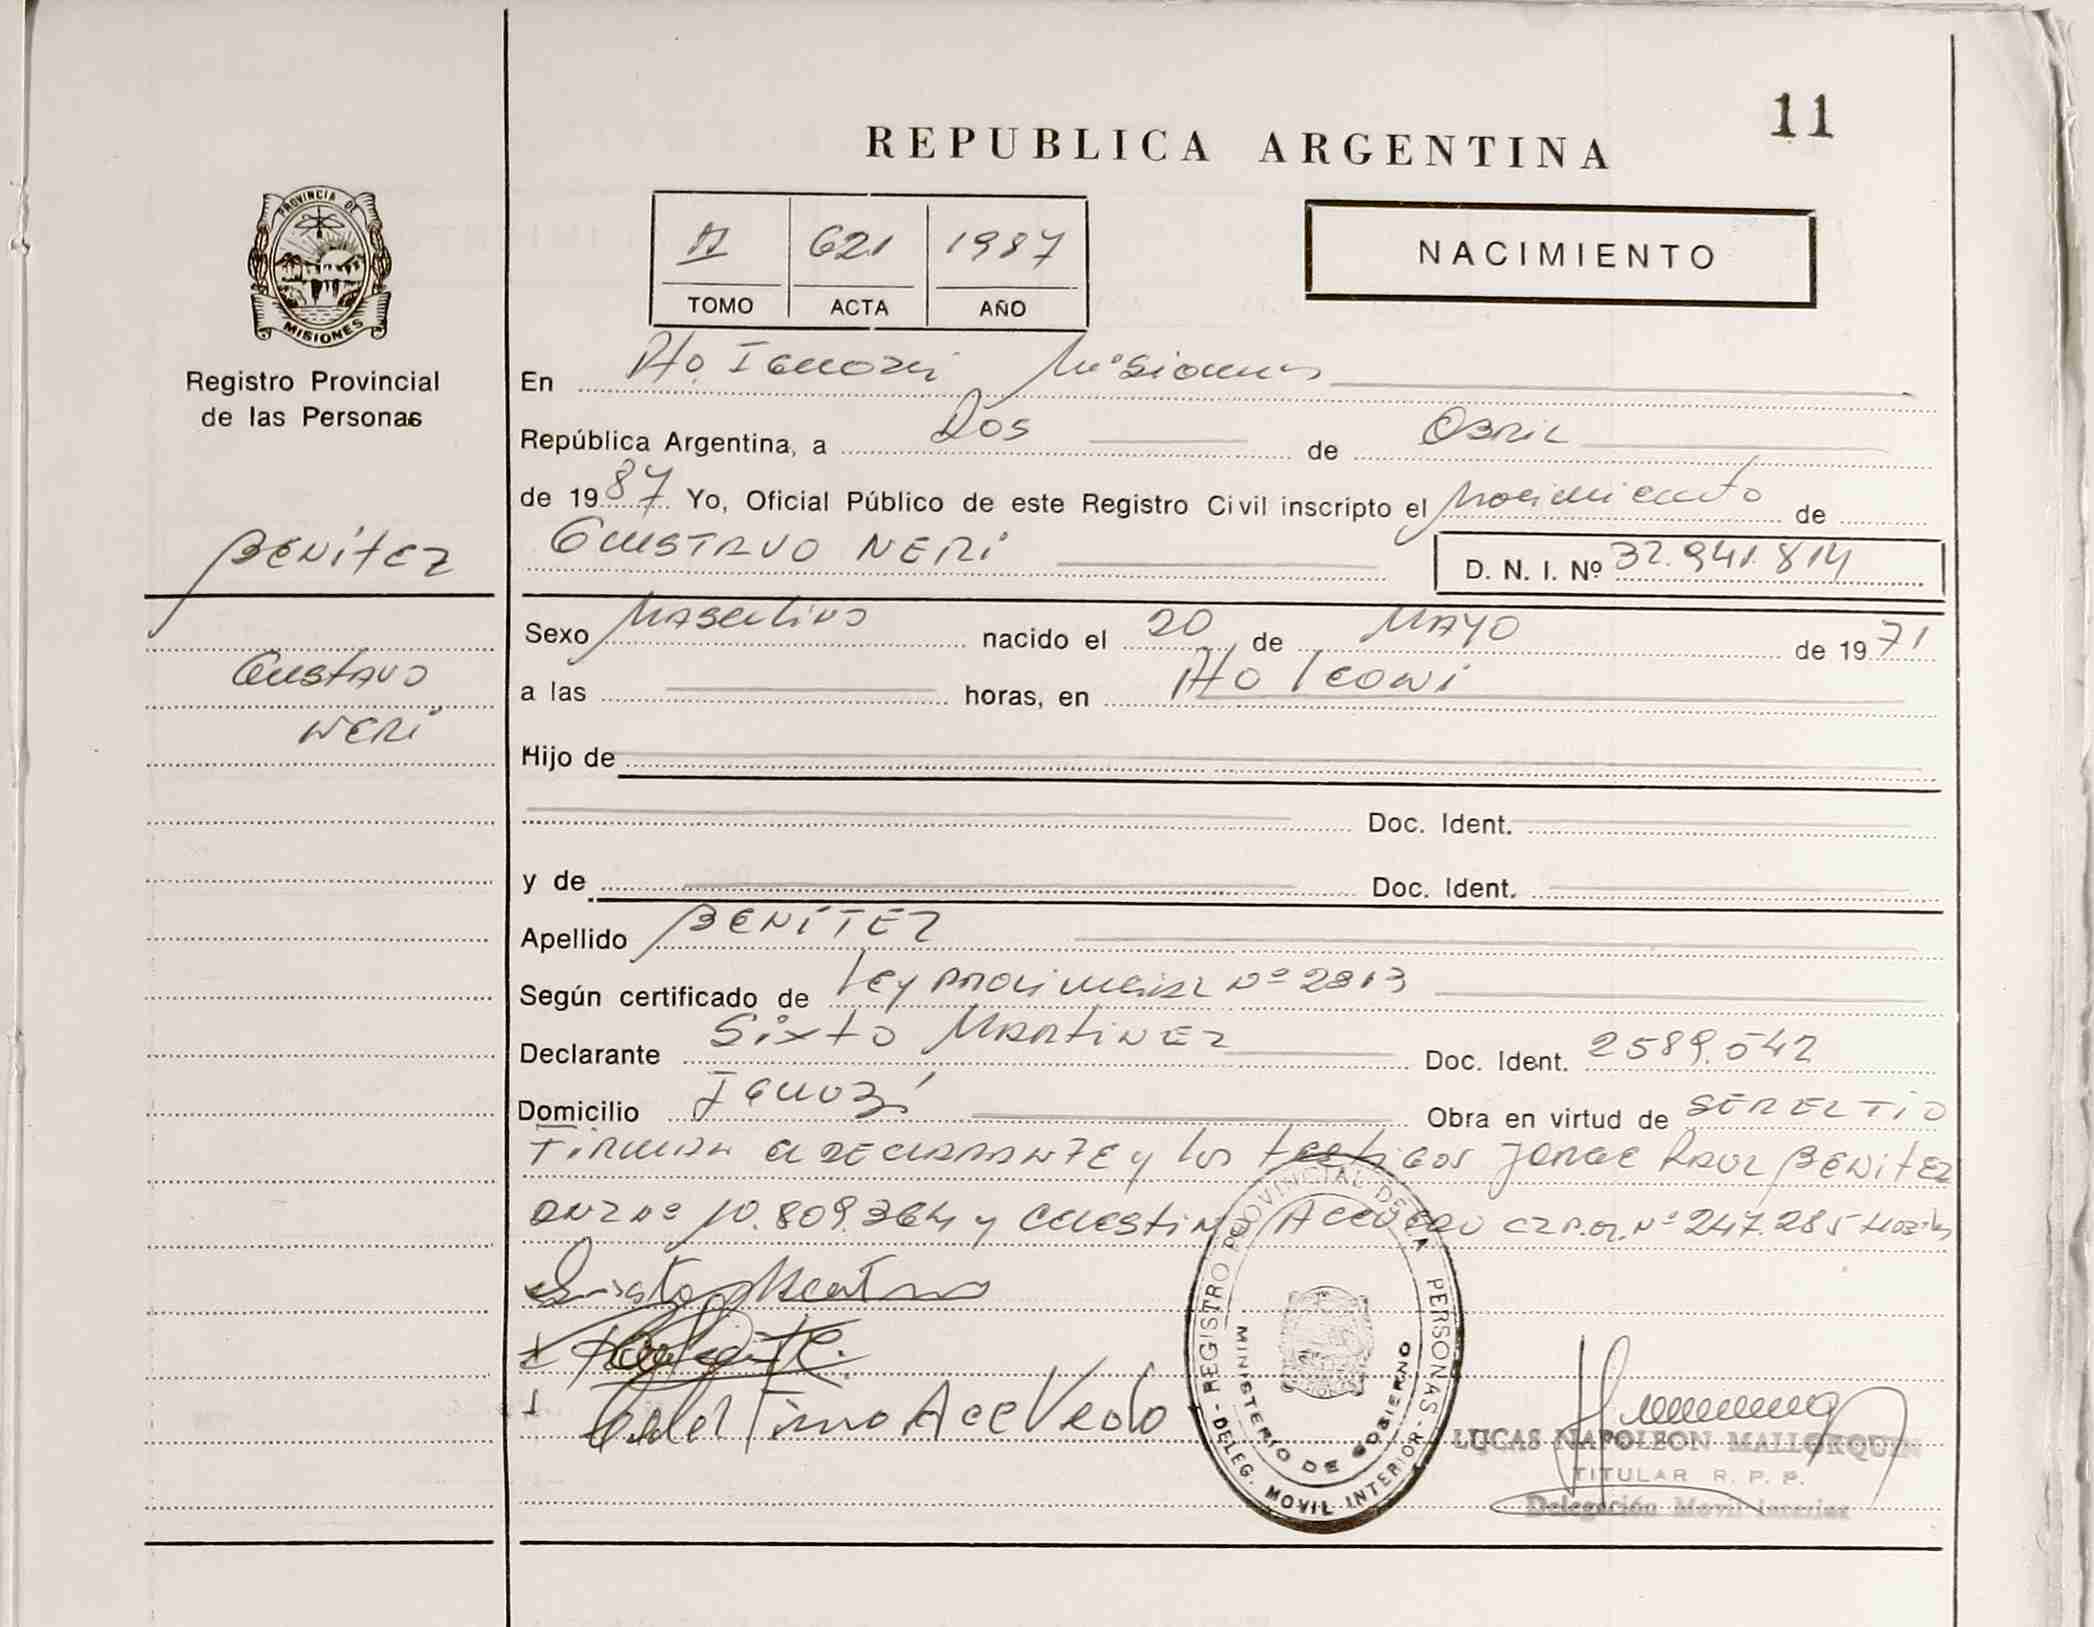 11
REPUBLICA ARGENTINA
PROVINCIA DE MISIONES
Registro Provincial
de las Personas
II 621 1987
TOMO ACTA AÑO
NACIMIENTO
En Pto. Iguazú Misiones
República Argentina, a Dos de Abril
de 1987 Yo, Oficial Público de este Registro Civil inscripto el Nacimiento de
GUSTAVO NERI D. N. I. Nº 32.941.814
BENÍTEZ
Gustavo
NERI
Sexo Masculino nacido el 20 de MAYO de 1971
a las horas, en Pto
Hijo de
Doc. Ident.
y de Doc. Ident.
Apellido BENÍTEZ
Según certificado de Ley provincial Nº 2813
Declarante Sixto MARTINEZ Doc. Ident. 2589.542
Domicilio Iguazú Obra en virtud de
Firman el DECLARANTE y los testigos JORGE RAUL BENITEZ
DNI Nº 10.809.364 y Celestino Acevedo Nº 247.285
Celestino Acevedo
REGISTRO PROVINCIAL DE LA PERSONAS - DELEG. MOVIL INTERIOR -
MINISTERIO DE GOBIERNO
LUCAS NAPOLEON MALLORQUIN
TITULAR R. P. P.
Delegación Movil Interior